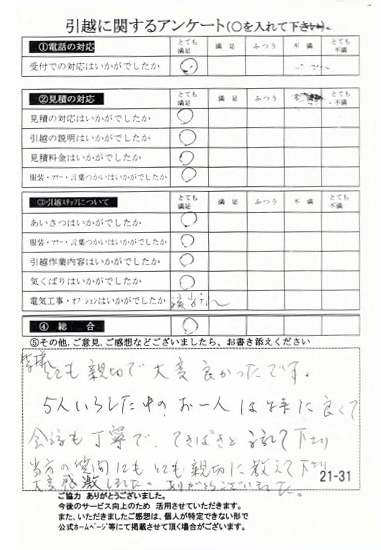 引越に関するアンケート(○を入れて下さい)。
①電話の対応 とても満足 満足 ふつう 不満 とても不満
受付での対応はいかがでしたか ○
②見積の対応 とても満足 満足 ふつう 不満 とても不満
見積の対応はいかがでしたか ○
引越の説明はいかがでしたか ○
見積料金はいかがでしたか ○
服装・マナー・言葉つかいはいかがでしたか ○
③引越スタッフについて とても満足 満足 ふつう 不満 とても不満
あいさつはいかがでしたか ○
服装・マナー・言葉つかいはいかがでしたか ○
引越作業内容はいかがでしたか ○
気くばりはいかがでしたか ○
電気工事・オプションはいかがでしたか
④ 総 合 ○
⑤その他、ご意見、ご感想などございましたら、お書き添えください
皆様とても親切で大変良かったです。
5人いらした中のお一人は特に良くて
会話も丁寧で、てきぱきと されて下さり
当方の質問にもとても親切に教えて下さり
大変感激しました。ありがとうございました。
21-31
ご協力 ありがとうございました。
今後のサービス向上のため 活用させていただきます。
また、いただきましたご感想は、個人が特定できない形で
公式ホームページ等にて掲載させて頂く場合がございます。